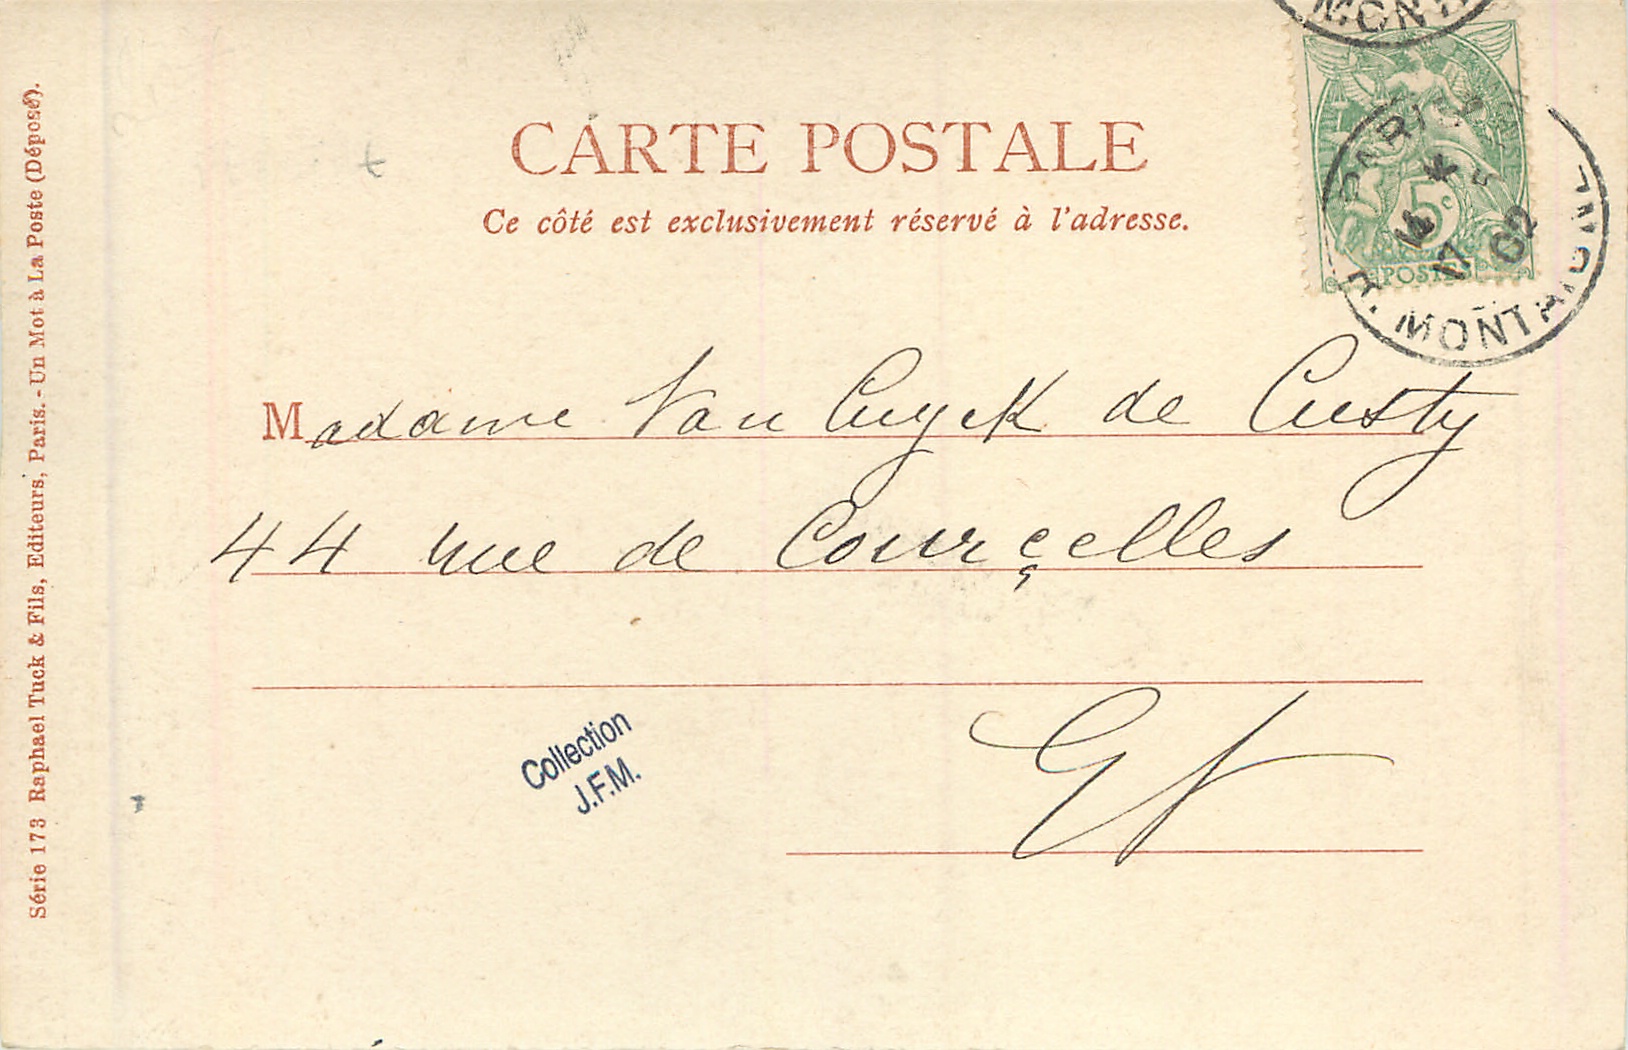 CARTE POSTALE
Ce côté est exclusivement réservé à l'adresse.
Madame Van Cuyck de Custy
44 rue de Courçelles
EV
Collection
J.F.M.
Série 173 Raphael Tuck & Fils, Editeurs, Paris. - Un Mot à La Poste (Déposé).
5c
POSTES
PARIS
02
MONT